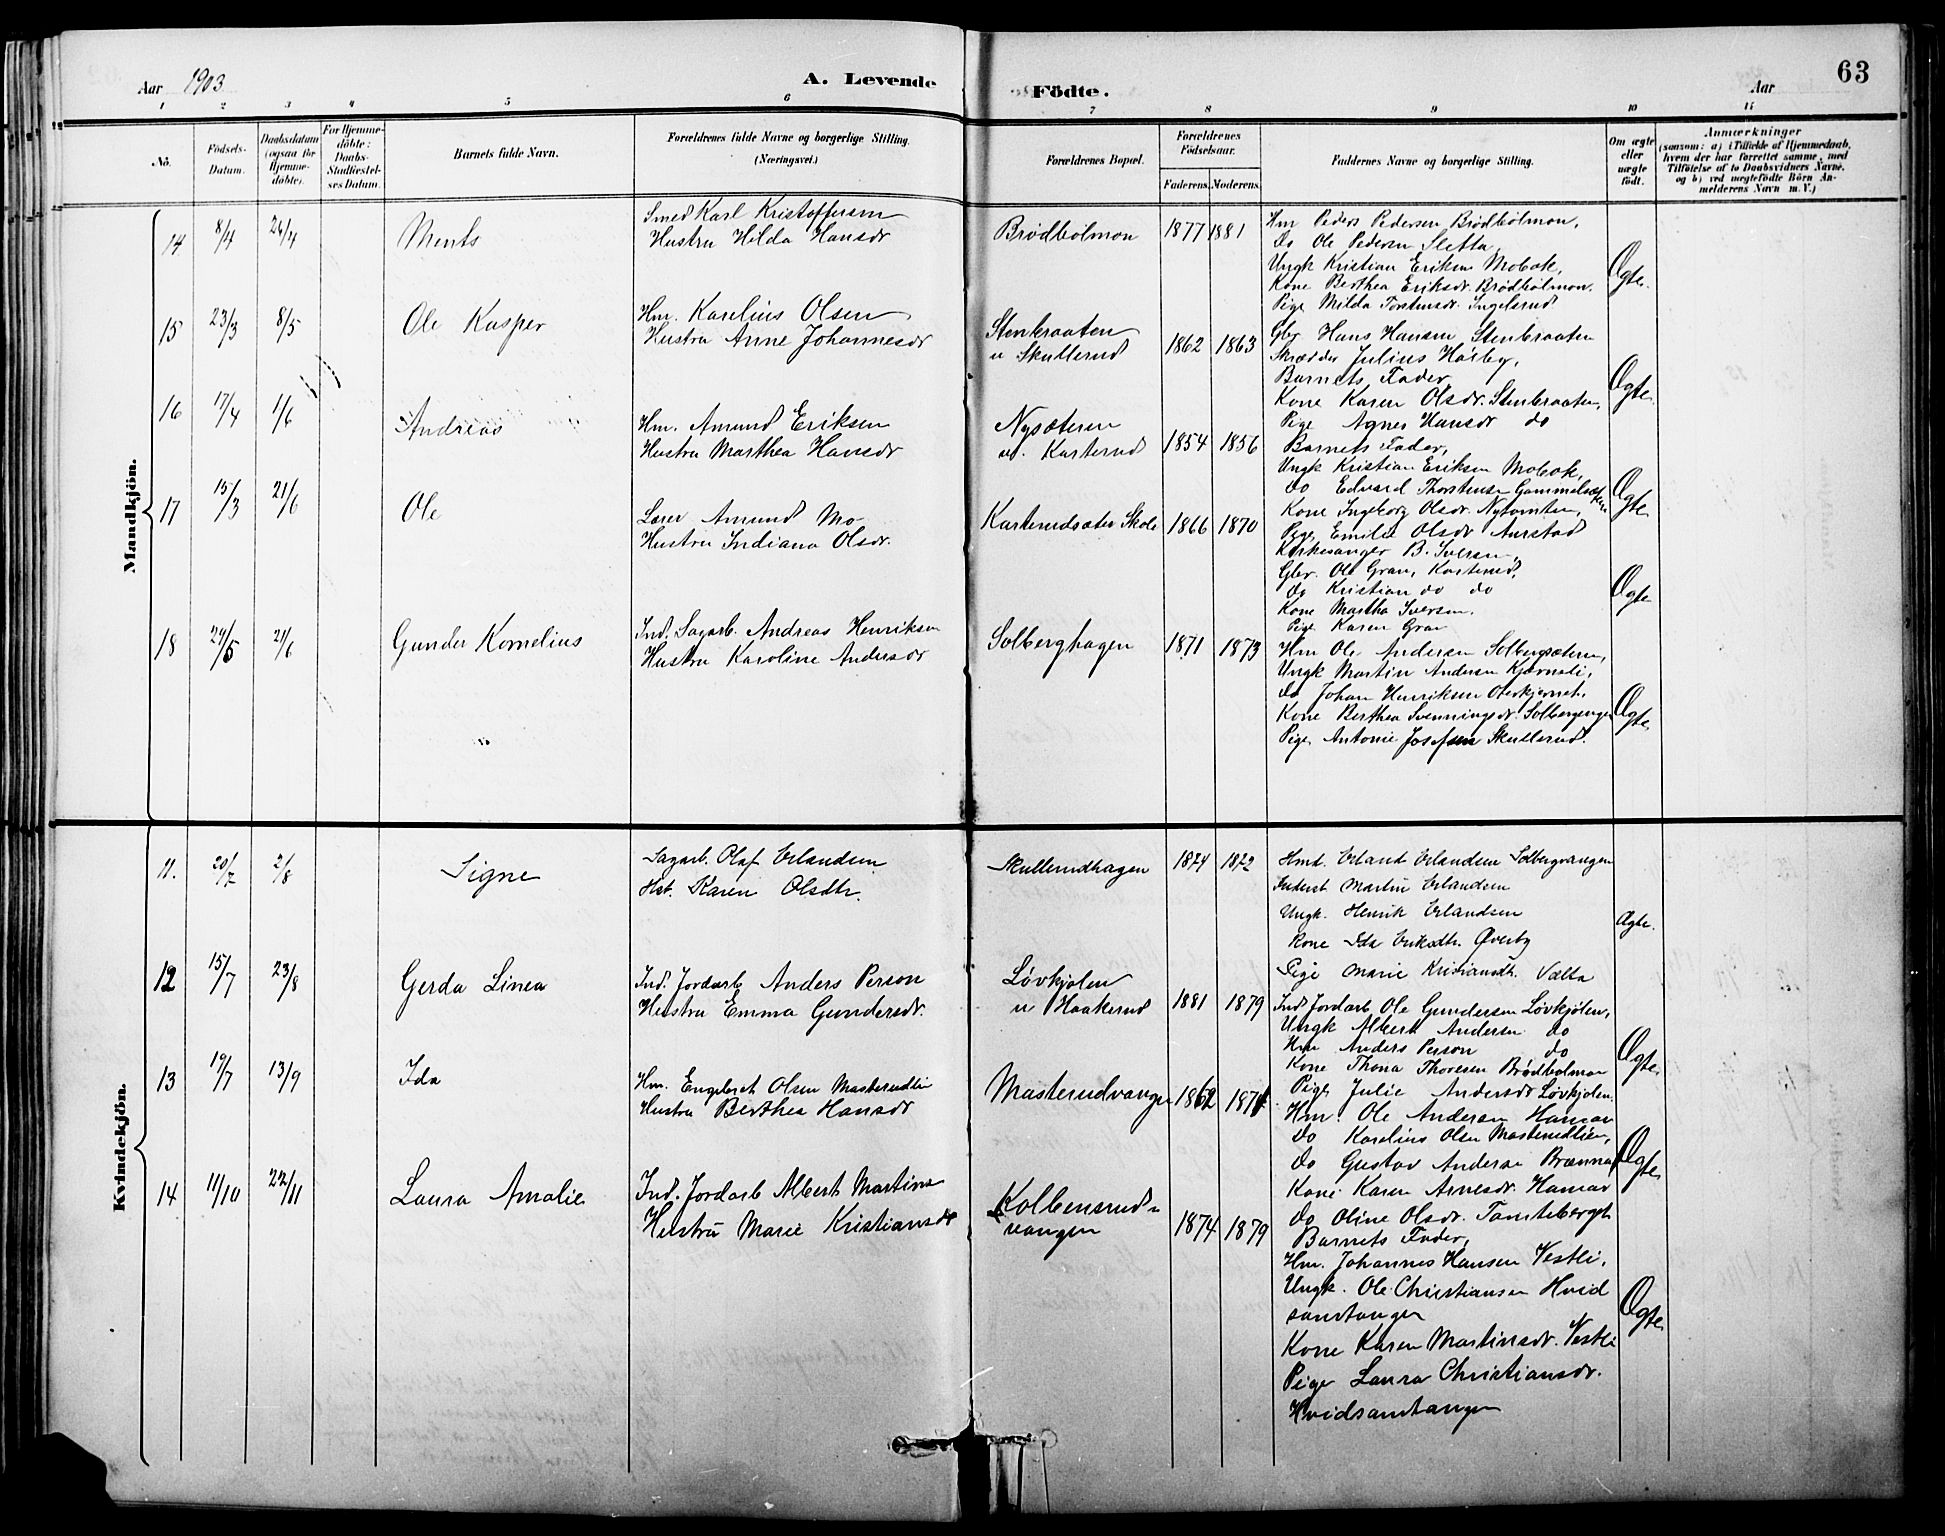 Aar 1903
A. Levende Födte.
Aar
63
1 2 3 4 5 6 7 8 9 10 11
No.
Födsels-Datum.
Daabsdatum (ogsaa för Hjemme-döbte).
For Hjemme-döbte: Daabs-Stadfæstel-ses Datum.
Barnets fulde Navn.
Forældrenes fulde Navne og borgerlige Stilling. (Næringsvei.)
Forældrenes Bopæl.
Forældrenes Födselsaar.
Faderens. Moderens.
Faddernes Navne og borgerlige Stilling.
Om ægte eller uægte födt.
Anmærkninger
(saasom: a) i Tilfælde af Hjemmedaab, hvem der har forrettet samme, med Tilföielse af to Daabsvidners Navne, og b) ved uægtefödte Börn An-melderens Navn m. V.)
Mandkjön.
14 8/4 26/4 Ments
Smed Karl Kristoffersen
Hustru Hilda Hansdr
Brødbølmon 1877 1881
Hm Peders Pedersen Brødbølmon,
Do Ole Pedersen Sletta,
Ungk Kristian Eriksen Mobak,
Kone Berthea Eriksdr. Brødbølmon.
Pige Milda Torstensdr. Ingelsrud
Ægte.
15 23/3 8/5 Ole Kasper
Hm. Karelius Olsen
Hustru Anne Johannesdr
Stenbraaten
u Skullerud 1862 1863
Gbr Hans Hansen Stenbraaten
Skrædder Julius Habsy,
Barnets Fader,
Kone Karen Olsdr. Stenbraaten,
Pige Agnes Hansdr do
Ægte.
16 17/4 1/6 Andreas
Hm. Amund Eriksen
Hustru Marthea Hansdr
Nysæteren
u. Karterud 1854 1856
Barnets Fader,
Ungk Kristian Eriksen Mobak,
do Edvard Thorstensen Gammelsætern
Kone Ingeborg Olsdr. Nytomten,
Pige Emilie Olsdr Aurstad
Ægte
17 15/3 21/6 Ole
Lærer Amund Mo
Hustru Indiana Olsdr.
Karterudsæter Skole 1866 1870
Kirkesanger B. Iversen,
Gbr. Ole Gran, Karterud,
do Kristian do do
Kone Martha Iversen.
Pige Karen Gran
Ægte
18 24/5 21/6 Gunder Kornelius
Ind. Sagarb. Andreas Henriksen
Hustru Karoline Andersdr
Solberghagen 1871 1873
Hm Ole Andersen Solbergsætern,
Ungk Martin Andersen Kjærnsli,
do Johan Henriksen Oterkjernet,
Kone Berthea Svenningsdr. Solbergenget
Pige Antonie Josefsen Skullerud.
Ægte
Kvindekjön.
11. 20/7 2/8 Signe
Sagarb. Olaf Erlandsen
Hst. Karen Olsdtr.
Skullerudhagen 1874 1872
Hmd. Erland Erlandsen Solbergvangen
Inderst Martin Erlandsen
Ungk. Henrik Erlandsen
Kone Ida Eriksdtr. Øverby
Pige Marie Kristiansdtr. Velta
Ægte.
12 15/7 23/8 Gerda Linea
Ind. Jordarb Anders Person
Hustru Emma Gundersdr.
Løvkjølen
u Haakerud 1881 1879
Ind Jordarb Ole Gundersen Løvkjølen,
Ungk Albert Andersen do
Hm Anders Person do
Kone Thona Thoresen Brødbølmon
Pige Julie Andersdr Løvkjølen.
Ægte
13 19/7 13/9 Ida
Hm. Engebret Olsen Masterudlien
Hustru Berthea Hansdr
Masterudvangen 1862 1871
Hm. Ole Andersen Hamar
do Karelius Olsen Masterudlien,
do Gustav Andersen Brænna
Kone Karen Arnesdr. Hamar
do Oline Olsdr. Tantebergt
Ægte
14 11/10 22/11 Laura Amalie
Ind. Jordarb Albert Martinsen
Hustru Marie Kristiansdr
Kolbensrud-
vangen 1874 1879
Barnets Fader,
Hm. Johannes Hansen Vestli,
Ungk. Ole Christiansen Hvid
santangen
Kone Karen Martinsdr. Vestli
Pige Laura Christiansdr.
Hvidsantangen
Ægte